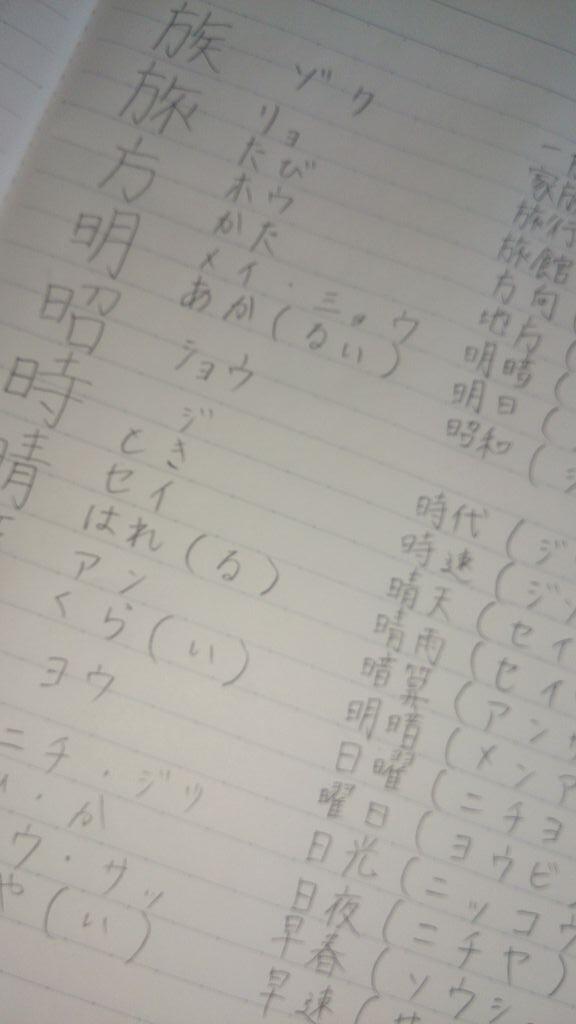 族 ゾク
旅 リョ
たび
方 ホウ
かた
明 メイ・ミョウ
あか(るい)
昭 ショウ
時 ジ
とき
晴 セイ
はれ(る)
アン
くらい(い)
ヨウ
ニチ・ジツ
か
ウ・サッ
や(い)
家族
旅行
旅館
方向
地方
明暗
明日
昭和
時代(ジ
時速(ジソ
晴天(セイ
晴雨(セイ
暗算(アン
明暗(メンア
日曜(ニチヨ
曜日(ヨウビ
日光(ニッコウ
日夜(ニチヤ)
早春(ソウシ
早速(サ